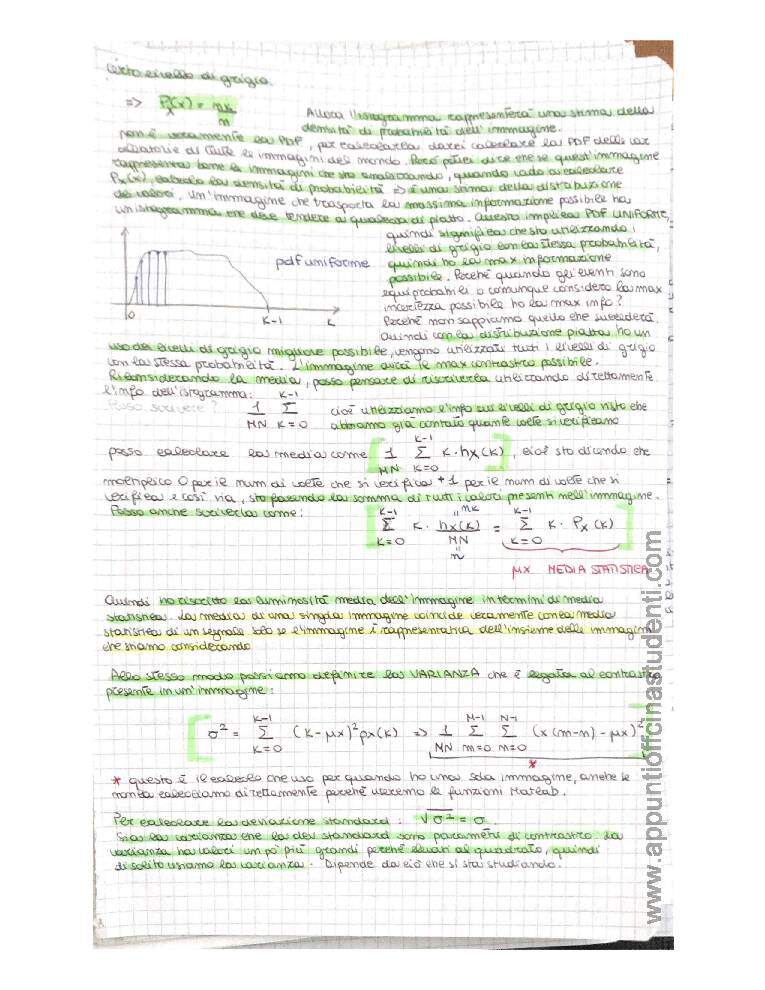 certo livello di grigio.
=> Px(x) = nk/n Allora l'istogramma rappresenterà una stima della
densità di probabilità dell'immagine.
non è veramente la PDF, per calcolarla dovrei calcolare la PDF delle var
aleatorie di tutte le immagini del mondo. Però potrei dire che se quest'immagine
rappresenta bene le immagini che sto analizzando, quando vado a calcolare
Px(x), calcolo la densità di probabilità => è una stima della distribuzione
dei valori. Un'immagine che trasporta la massima informazione possibile ha
un istogramma che deve tendere a qualcosa di piatto. Questo implica PDF UNIFORME,
quindi significa che sto utilizzando i
livelli di grigio con la stessa probabilità,
pdf uniforme
quindi ho la max informazione
possibile. Perché quando gli eventi sono
equiprobabili o comunque considero la max
incertezza possibile ho la max info?
0 K-1 K
Perché non sappiamo quello che succederà.
Quindi con la distribuzione piatta ho un
uso dei livelli di grigio migliore possibile, vengono utilizzati tutti i livelli di grigio
con la stessa probabilità. L'immagine avrà le max contrasto possibile.
Riconsiderando la media, posso pensare di riscriverla utilizzando direttamente
l'info dell'istogramma:
Posso scrivere? 1/MN Σ K=0 K-1 cioè utilizziamo l'info sui livelli di grigio visto che
abbiamo già contato quante volte si verificano
posso calcolare la media come [1/MN Σ K=0 K-1 K·hx(K)], cioè sto dicendo che
moltiplico 0 per il num di volte che si verifica + 1 per il num di volte che si
verifica e così via, sto facendo la somma di tutti i valori presenti nell'immagine.
Posso anche scriverla come: [Σ K=0 K-1 K · hx(K)/MN = Σ K=0 K-1 K · Px(K)]
" nk
" n
μx MEDIA STATISTICA
Quindi ho riscritto la luminosità media dell'immagine in termini di media
statistica. La media di una singola immagine coincide veramente con la media
statistica di un segnale solo se l'immagine è rappresentativa dell'insieme delle immagini
che stiamo considerando
Allo stesso modo possiamo definire la VARIANZA che è legata al contrasto
presente in un'immagine:
[σ² = Σ K=0 K-1 (K-μx)² px(K) => 1/MN Σ m=0 M-1 Σ n=0 N-1 (x(m-n) - μx)²]
*
* questo è il calcolo che uso per quando ho una sola immagine, anche se
non la calcoliamo direttamente perché useremo le funzioni Matlab.
Per calcolare la deviazione standard: √σ² = σ.
Sia la varianza che la dev standard sono parametri di contrasto. La
varianza ha valori un po' più grandi perché elevati al quadrato, quindi
di solito usiamo la varianza. Dipende da ciò che si sta studiando.
www.appuntiofficinastudenti.com